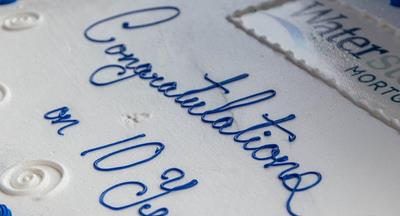 Congratulations
on 10 Ye
Water
MORT